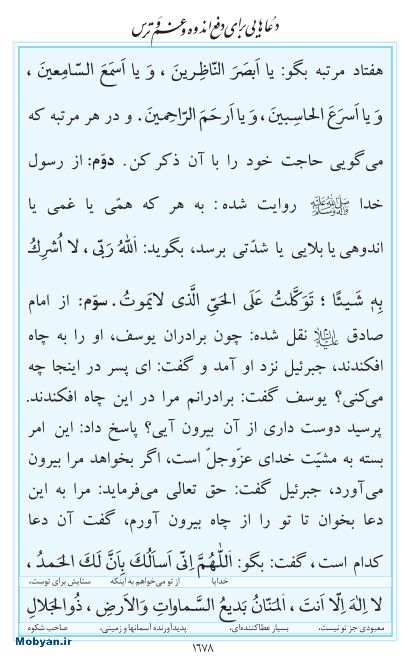 دعاهایی برای دفع اندوه و غم و ترس
هفتاد مرتبه بگو: یا اَبصَرَ النّاظِرینَ ، وَ یا اَسمَعَ السّامِعینَ ،
وَ یا اَسرَعَ الحاسِبینَ ، وَ یا اَرحَمَ الرّاحِمینَ . و در هر مرتبه که
می‌گویی حاجت خود را با آن ذکر کن. دوّم: از رسول
خدا ﷺ روایت شده: به هر که همّی یا غمی یا
اندوهی یا بلایی یا شدّتی برسد، بگوید: اَللهُ رَبّی ، لا اُشرِكُ
بِهٖ شَیئًا ؛ تَوَكَّلتُ عَلَی الحَیِّ الَّذی لایَموتُ . سوّم: از امام
صادق علیه‌السلام نقل شده: چون برادران یوسف، او را به چاه
افکندند، جبرئیل نزد او آمد و گفت: ای پسر در اینجا چه
می‌کنی؟ یوسف گفت: برادرانم مرا در این چاه افکندند.
پرسید دوست داری از آن بیرون آیی؟ پاسخ داد: این امر
بسته به مشیّت خدای عزّوجلّ است، اگر بخواهد مرا بیرون
می‌آورد، جبرئیل گفت: حق تعالی می‌فرماید: مرا به این
دعا بخوان تا تو را از چاه بیرون آورم، گفت آن دعا
کدام است، گفت: بگو: اَللّٰهُمَّ اِنّی اَساَلُكَ بِاَنَّ لَكَ الحَمدُ ،
خدایا از تو می‌خواهم به اینکه ستایش برای توست،
لا اِلٰهَ اِلّا اَنتَ ، اَلمَنّانُ بَدیعُ السَّماواتِ وَالاَرضِ ، ذُوالجَلالِ
معبودی جز تو نیست، بسیار عطاکننده‌ای، پدیدآورنده آسمانها و زمینی، صاحب شکوه
۱۶۷۸
Mobyan.ir